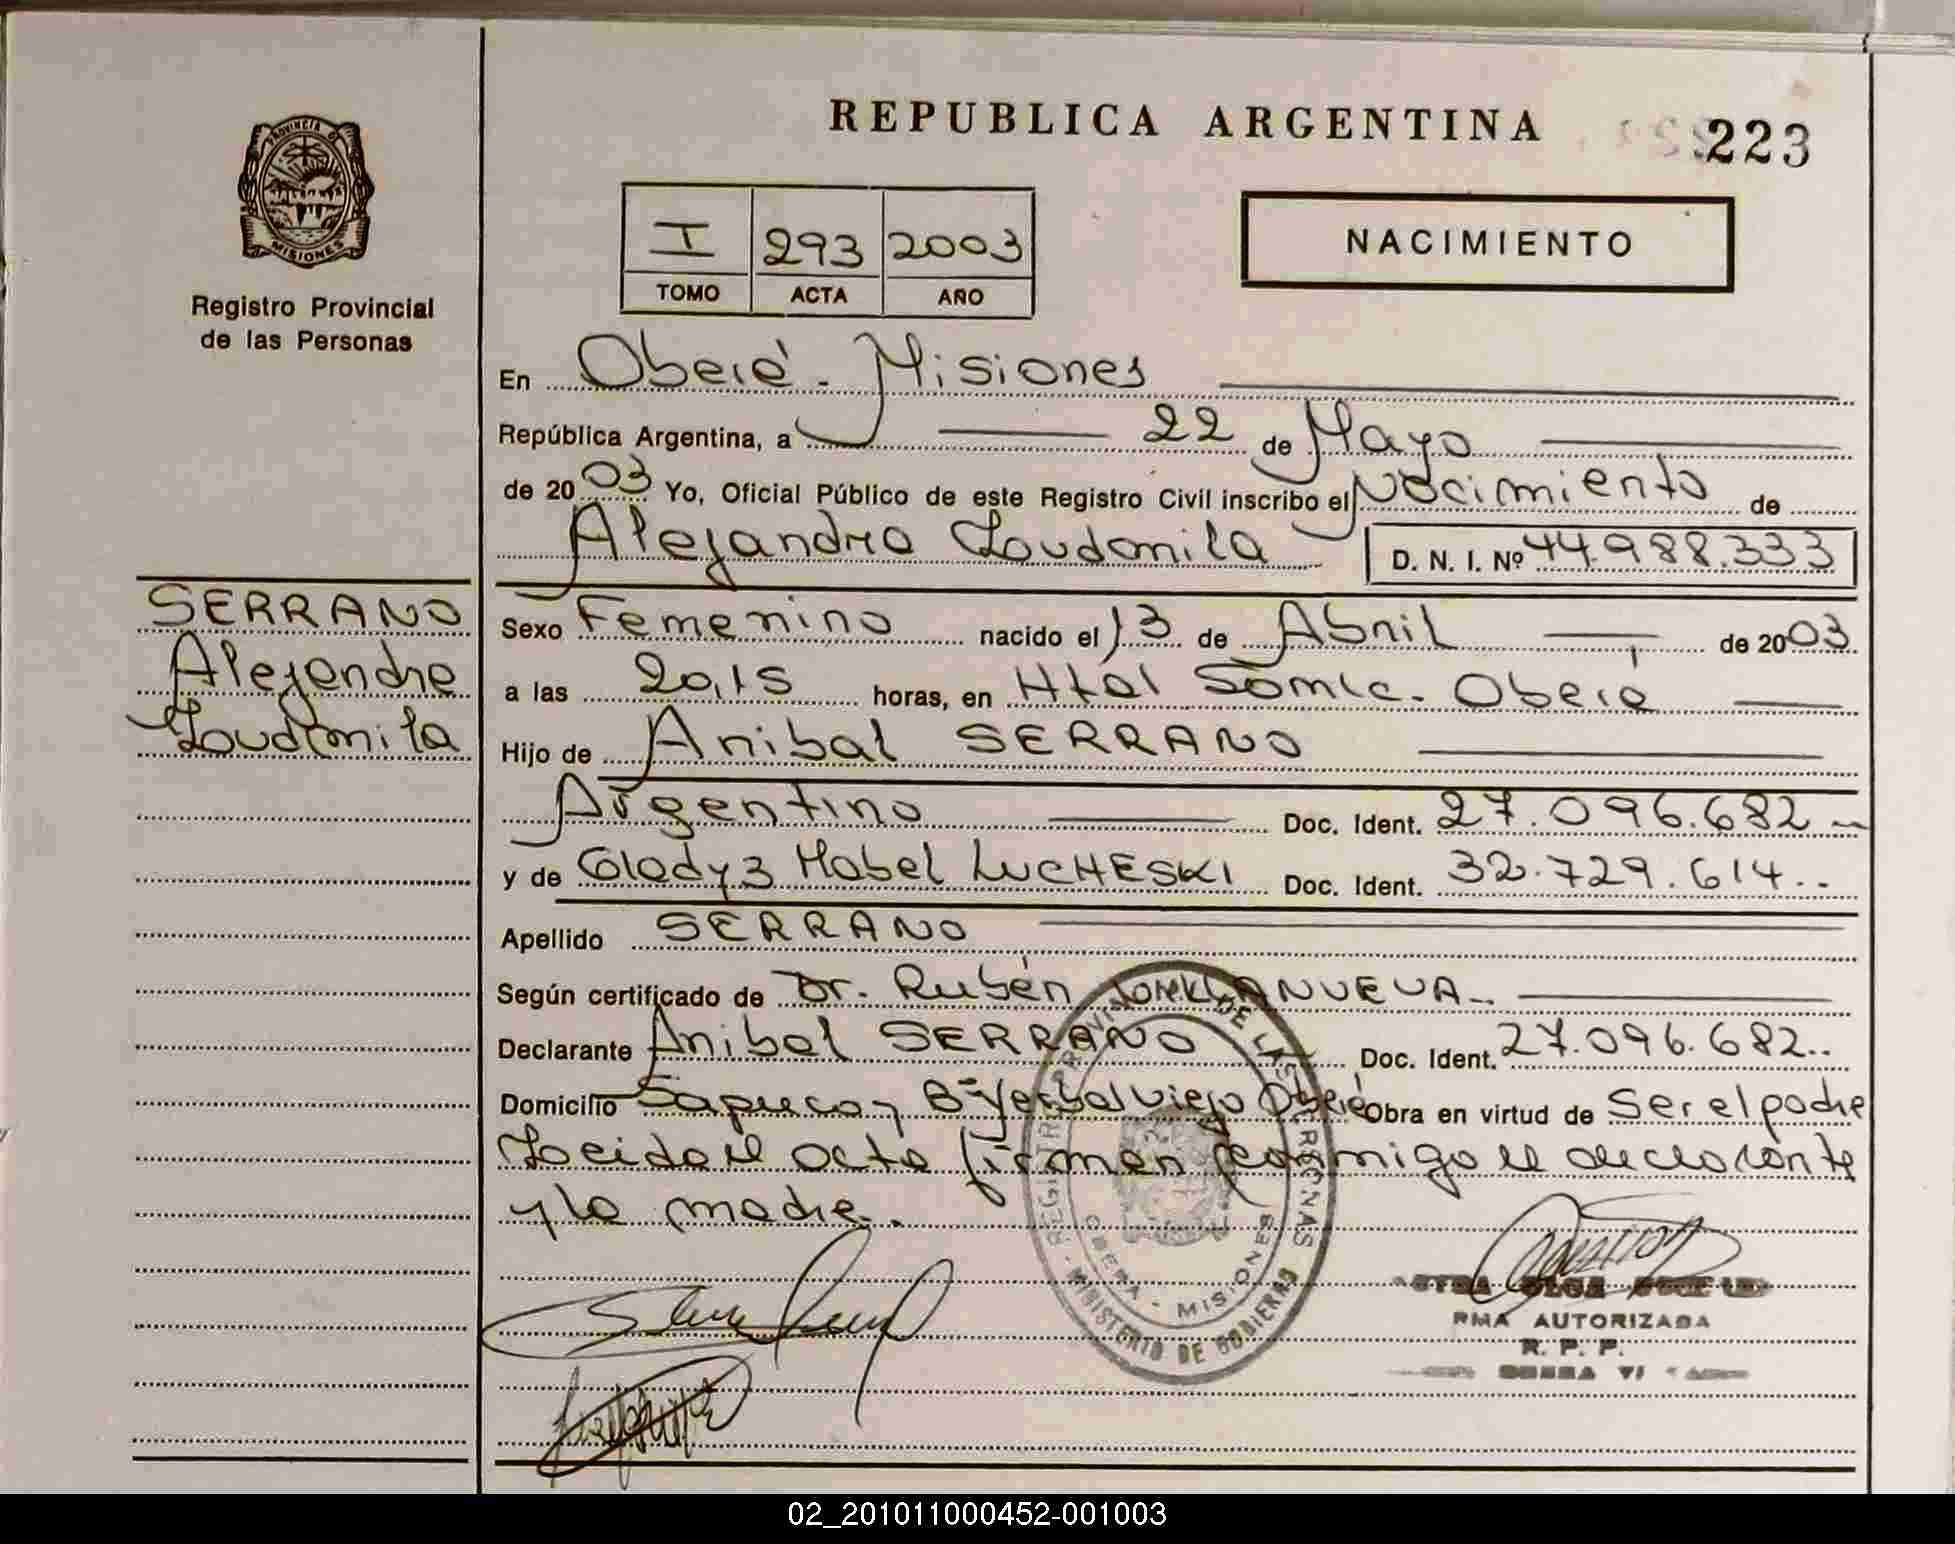 REPUBLICA ARGENTINA
223
PROVINCIA DE
MISIONES
Registro Provincial
de las Personas
I 293 2003
TOMO ACTA AÑO
NACIMIENTO
En Oberá - Misiones
República Argentina, a 22 de Mayo
de 2003 Yo, Oficial Público de este Registro Civil inscribo el Nacimiento de
Alejandra Loudmila D. N. I. Nº 44.988.333
SERRANO
Alejandra
Loudmila
Sexo Femenino nacido el 13 de Abril de 2003
a las 20,15 horas, en Htal Samic - Oberá
Hijo de Anibal SERRANO
Argentino Doc. Ident. 27.096.682
y de Gladys Mabel LUCHESKI Doc. Ident. 32.729.614
Apellido SERRANO
Según certificado de Dr. Rubén
Declarante Anibal SERRANO Doc. Ident. 27.096.682
Domicilio Sapucay Bº Yerbal Viejo Oberá Obra en virtud de Ser el padre
Leida el acta firman conmigo el declarante
y la madre.
REGISTRO PROVINCIAL DE LAS PERSONAS
OBERA - MISIONES
MINISTERIO DE GOBIERNO
AUTORIZADA
R. P. P.
02_201011000452-001003